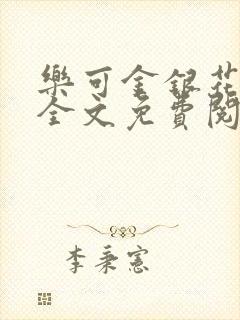 樂可金銀花
全文免費閱
李秉憲